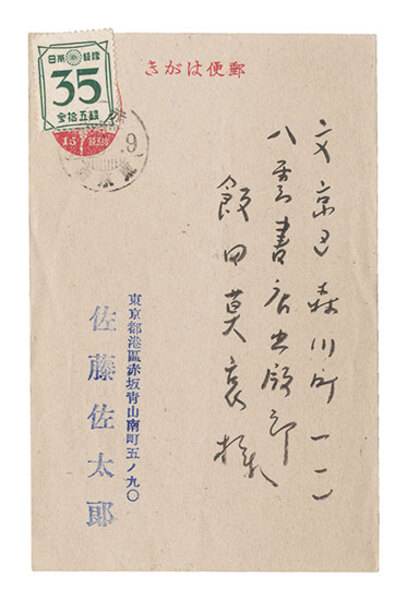 郵便はがき
35
15
9
文京区森川町一一一
八雲書店出版部
飯田莫哀様
東京都港區赤坂青山南町五ノ九〇
佐藤佐太郎